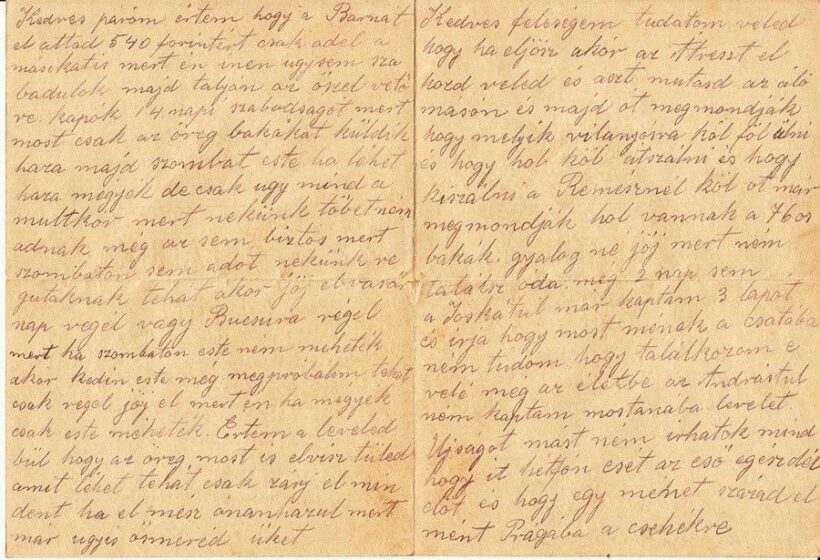 Kedves párom értem hogy a Barnát
el attad 540 forintért csak adel a
másikatis mert én inen ugysem sza
badulok majd taljan az öszel vetö
re kapók 14 napi szabadságot mert
most csak az öreg bakákat küldik
haza majd szombat este ha lehet
haza megyek de csak ugy mind a
multkor mert nekünk töbet nem
adnak meg az sem biztós mert
szombatón sem adot nekünk ve
gutaknak tehát akor jöj el vasár
nap vegél vagy Bucsura régel
mert ha szombatón este nem mehetek
akór kedin este még megpróbalom tehát
csak regel jöj el mert én ha mégyek
csak este mehetek. Értem a leveled
bül hogy az öreg most is elvisz tüled
amit lehet tehát csak zárj el min
dent ha el mész ónanhazul mert
már ugyis ösmeréd üket
Kedves feleségem tudatom veled
hogy ha eljösz akór az Atreszt el
hozd veled és aszt mutasd az áló
másón és majd ót megmondják
hogy melyik vilanyósra köl föl ülni
és hogy hol köl átszálni és hogy
kiszálni a Remésznél köl ot már
megmondják hol vannak a 76 os
bakák. gyalog ne jöj mert nem
találsz óda még 2 nap sem
a Joskátul már kaptam 3 lapot
és irja hogy most menek a csatába
nem tudom hogy találkozom e
velé meg az életbe az Andrástul
nem kaptam mostanába levelet
Ujsagot mást nem irhatok mind
hogy it hétfön esét az esö egesz dél
elöt és hogy egy menet század el
mént Prágába a csehékre